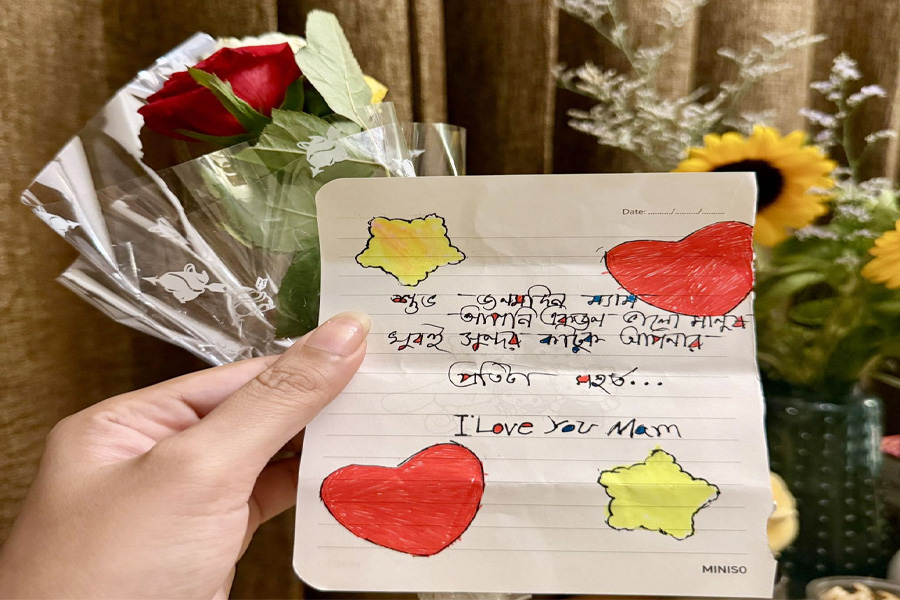 Date: ........./........./.........
শুভ জন্মদিন ম্যাম
আপনি একজন ভালো মানুষ
খুবই সুন্দর কাটুক আপনার
প্রতিটা মুহূর্ত...
I Love You Mam
MINISO